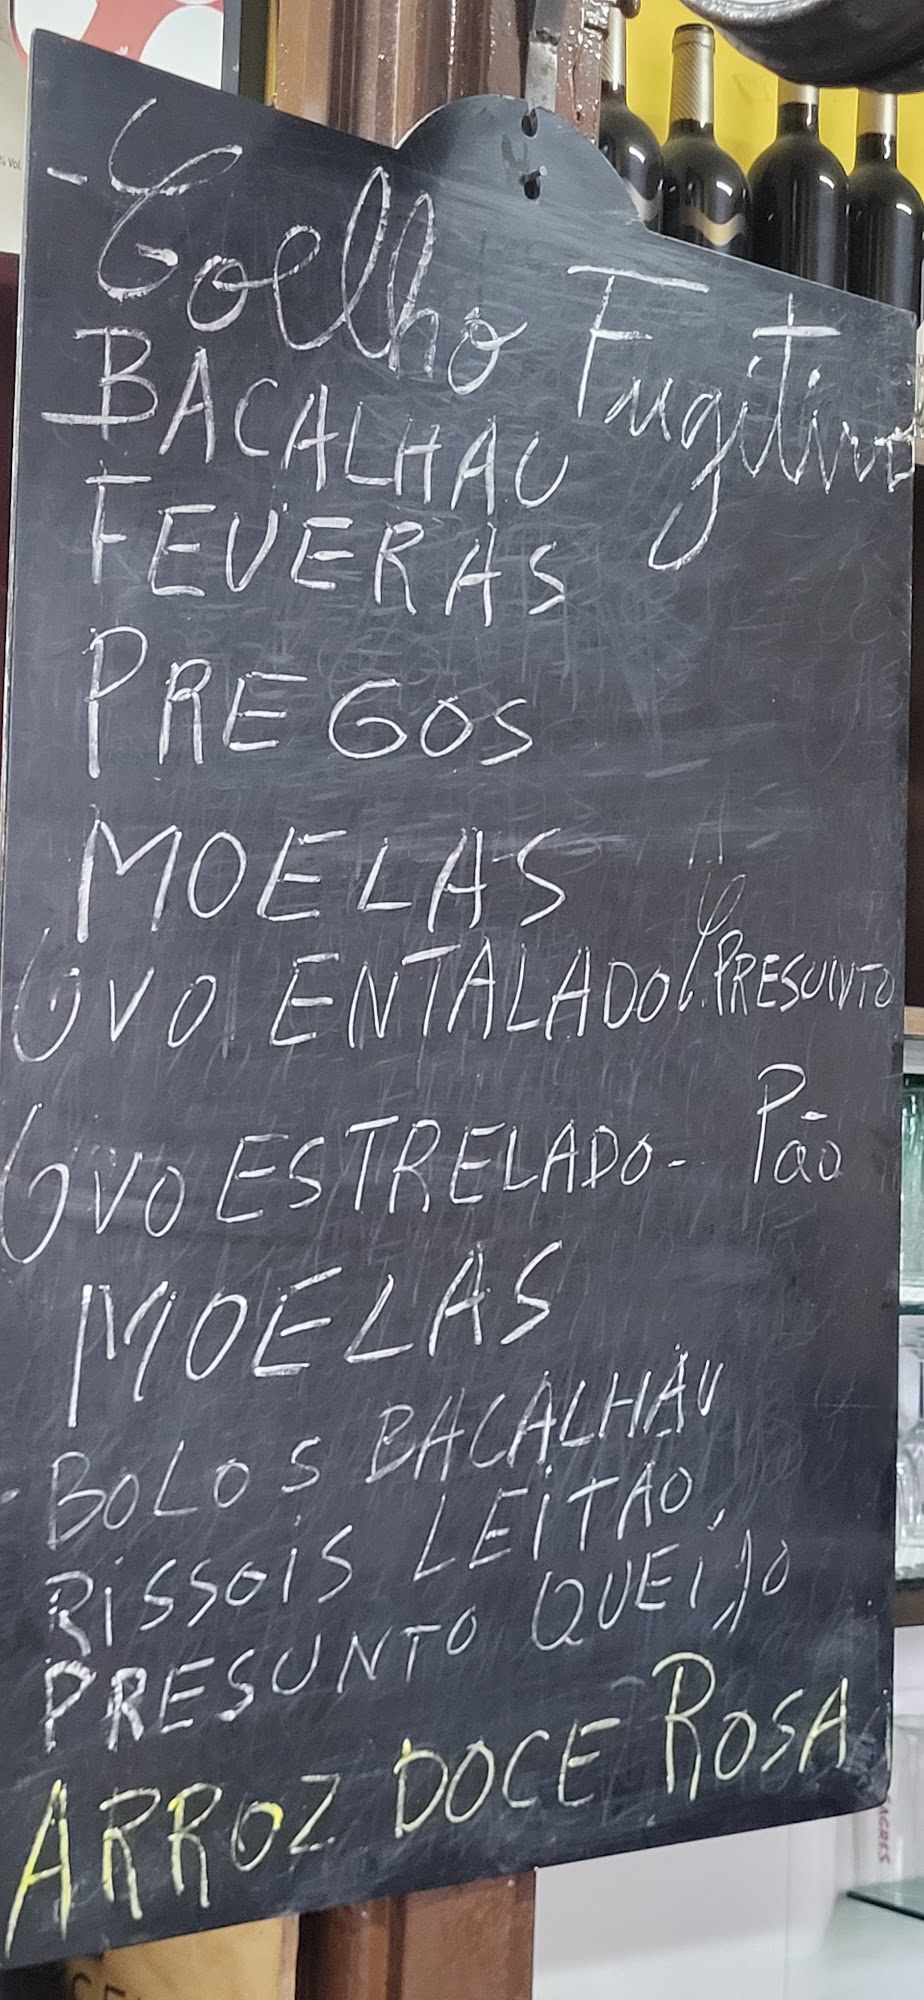 - Coelho Fugitivo
BACALHAU
FEVERAS
PREGOS
MOELAS
OVO ENTALADO C/ PRESUNTO
OVO ESTRELADO - Pão
MOELAS
- BOLOS BACALHAU
RISSOIS LEITÃO,
PRESUNTO QUEIJO
ARROZ DOCE ROSA
% Vol.